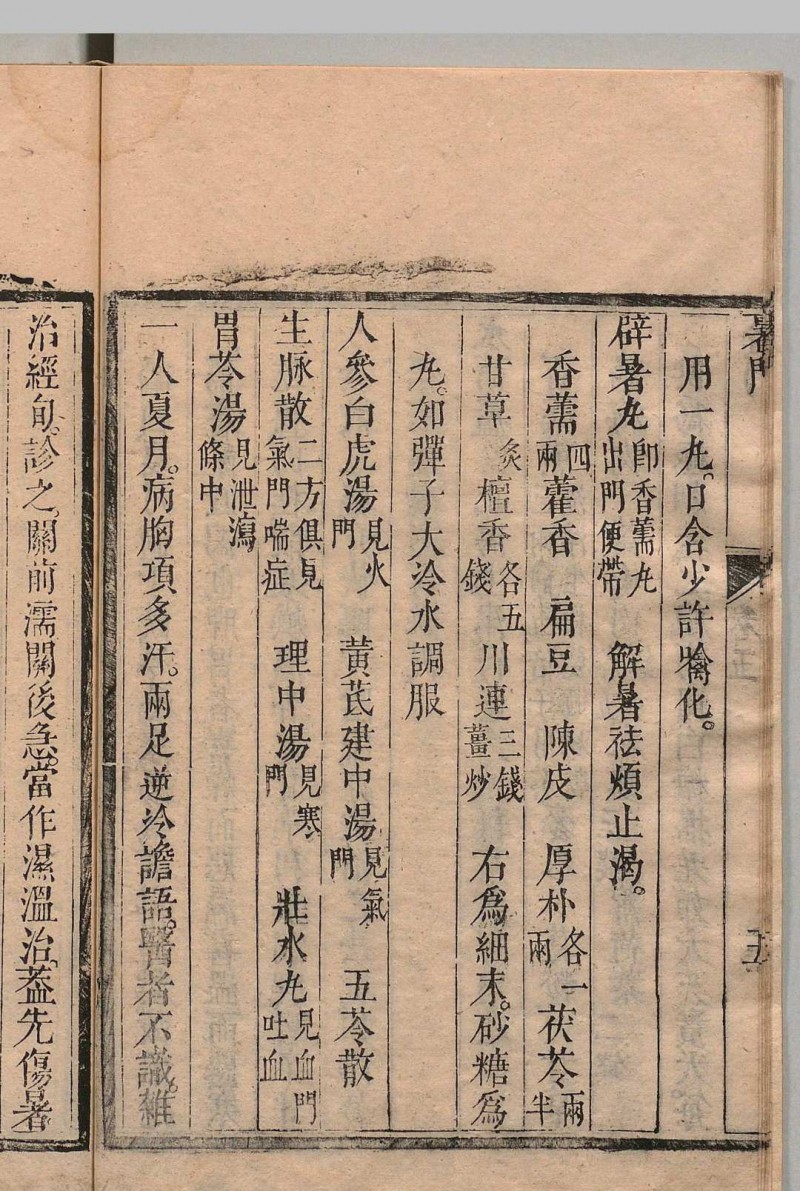 暑門 五
用一丸。口含少許噙化。
辟暑丸 即香薷丸出門便帶 解暑祛煩止渴。
香薷 四兩 藿香 扁豆 陳皮 厚朴 各一兩 茯苓 兩半
甘草 炙 檀香 各五錢 川連 三錢薑炒 右爲細末。砂糖爲
丸。如彈子大冷水調服
人參白虎湯 見火門 黃芪建中湯 見氣門 五苓散
生脉散 二方俱見氣門喘症 理中湯 見寒門 壯水丸 見血門吐血
胃苓湯 見泄瀉條中
一人夏月。病胸項多汗。兩足逆冷譫語。醫者不識。雜
治經旬。診之。關前濡關後急。當作濕溫治。蓋先傷暑